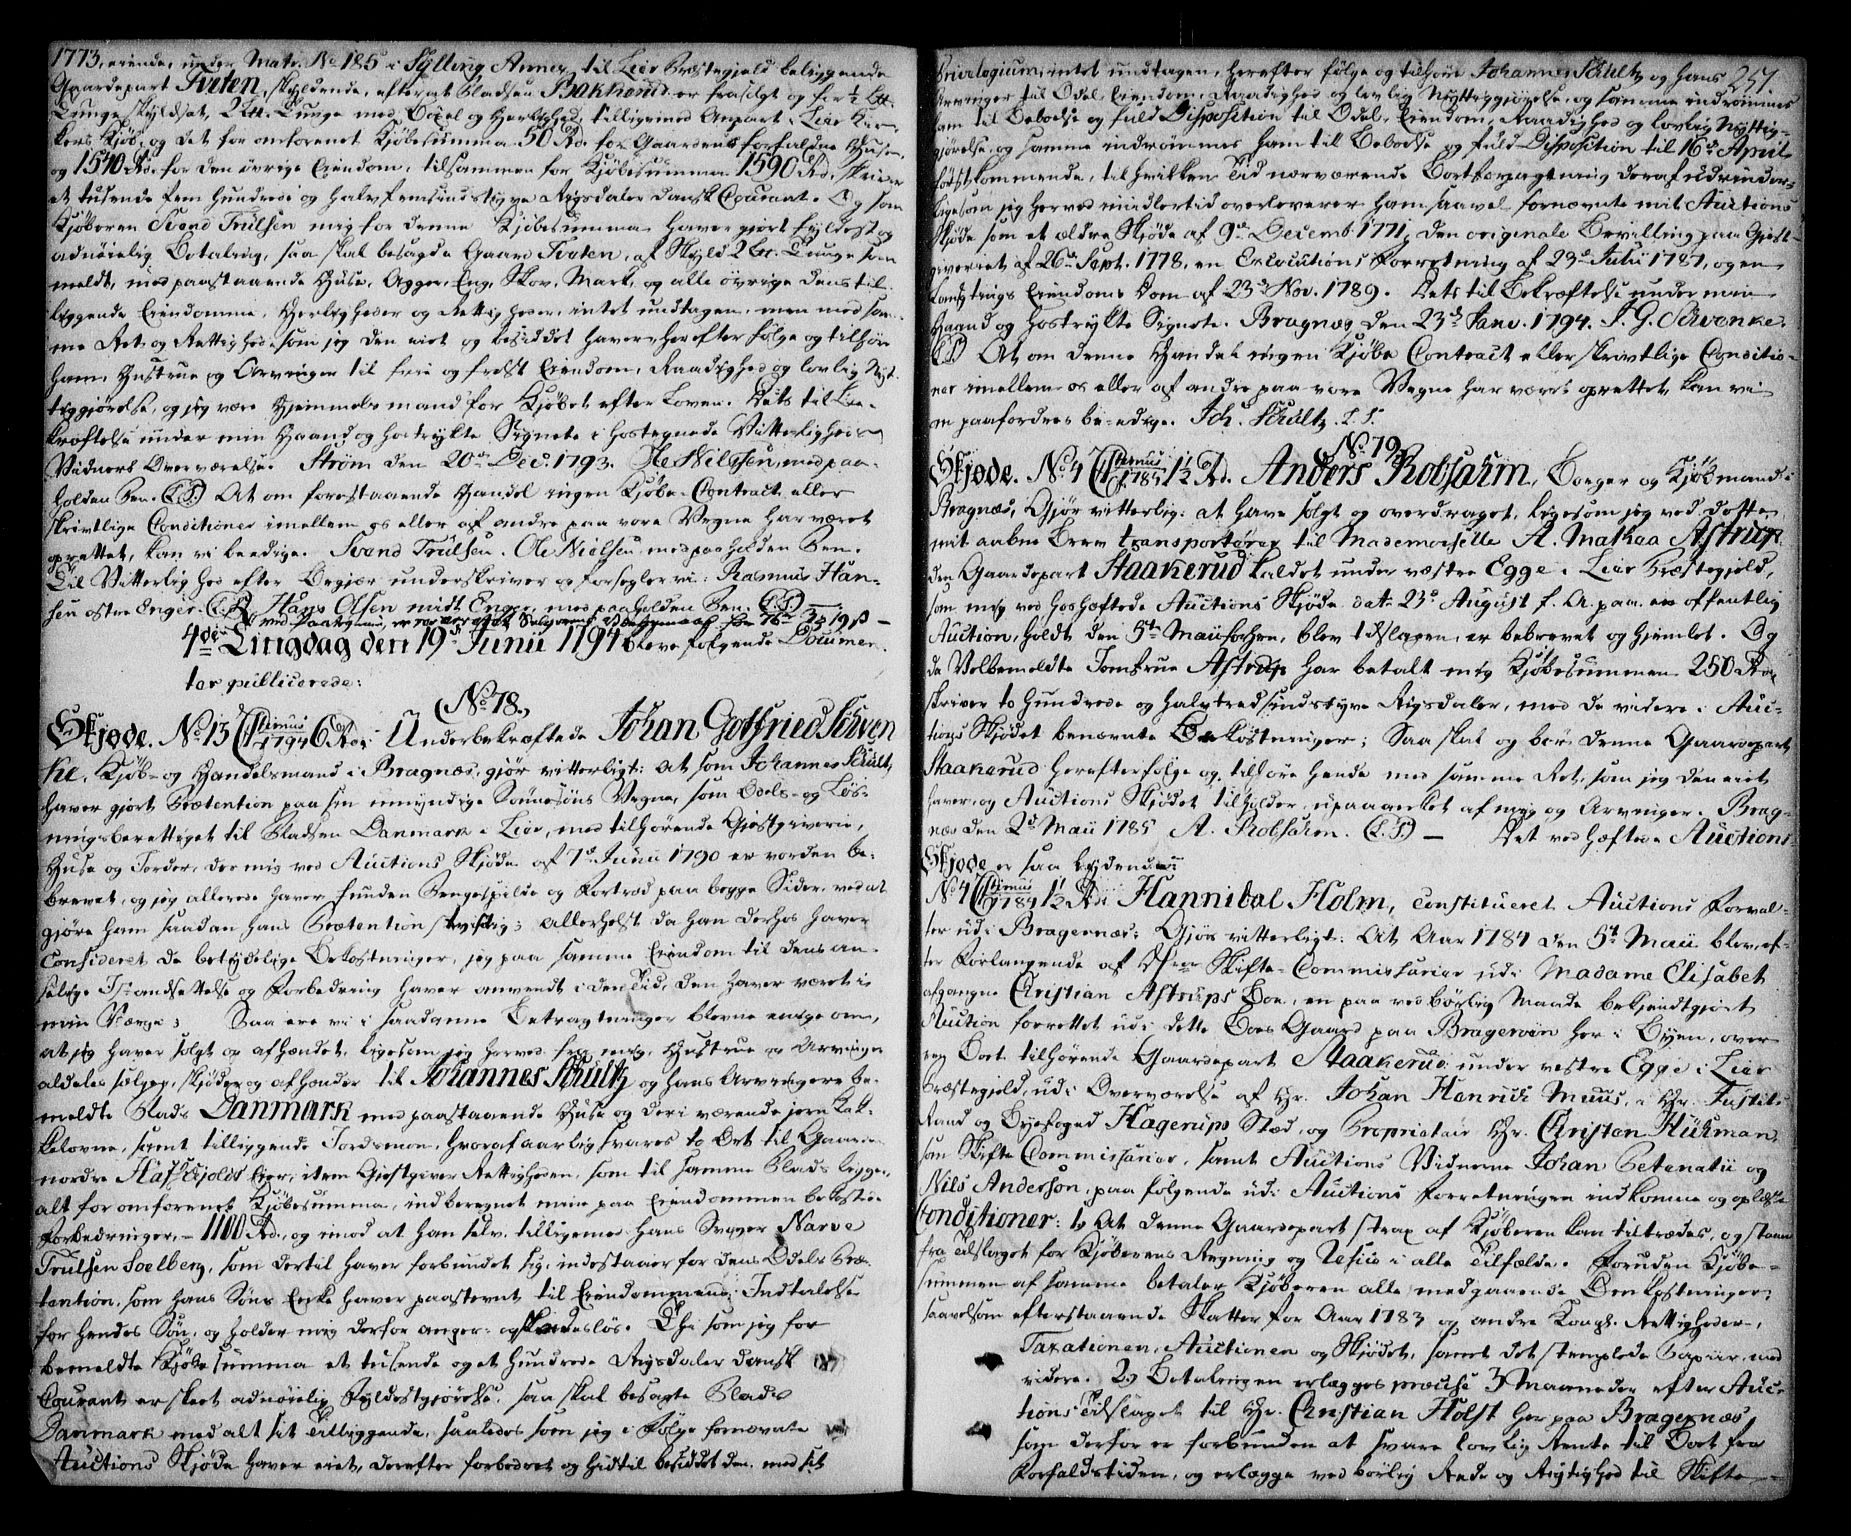 1773, eiende, under Matr. No 185 i Sylling Annex til Lier Præstegjeld beliggende
Gaardepart Tveten, skyldende, efterat Pladsen Bakkerud er frasolgt og for ½ Lt.
Tunge skyldsat, 2 Lt. Tunge med Bøxel og Herlighed, tilligemed Anpart i Lier Kir-
kers Kjøb, og det for omforenet Kjøbesumma 50 Rd. for Gaardens forfaldne Huse,
og 1540 Rd. for den øvrige Eiendom, tilsammen for Kjøbesumma 1590 Rd. skriver
et tusende fem hundrede og halvfemsindstyve Rigsdaler dansk Courant. Og som
Kjøberen Svend Trulsen mig for denne Kjøbesumma haver gjort fyldest og
adnøielig Betaling, saa skal besagde Gaard Tveten, af Skyld 2 Lt. Tunge som
meldt, med paastaaende Huse, Agger, Eng, Skov, Mark, og alle øvrige dens til-
liggende Eiendomme, Herligheder og Rettigheder, intet undtagen, men med sam-
me Ret og Rettighed, som jeg den eiet og besiddet haver, herefter følge og tilhøre
ham, Hustrue og Arvinger til frie og frelst Eiendom, Raadighed og lovlig Nyt-
tiggjørelse, og jeg være Hjemmelsmand for Kjøbet efter Loven. Dets til Be-
kræftelse under min Haand og hostrykte Signete i hostegnede Vitterligheds
Vidners Overværelse. Strøm den 20de Dec. 1793. Ole Nielsen, med paa-
holden Pen. (L.S.) At om forestaaende Handel ingen Kjøbe-Contract eller
skrivtlige Conditioner imellem os eller af andre paa vore Vegne har været
oprettet, kan vi beedige. Svend Trulsen. Ole Nielsen med paaholden Pen.
Til Vitterlighed efter Begjær underskriver og forsegler vi: Rasmus Han-
sen østre Enger. (L.S.) Hans Olsen midt Enger, med paaholden Pen. (L.S.)
4de Tingdag den 19de Junii 1794 bleve følgende Documen-
ter publicerede:
No 78.
Skjøde. No 13 C7 1794 6 Rd. Underbekræftede Johan Gotfried Schven
ke, Kjøb- og Handelsmand i Bragnæs, gjør vitterligt: at som Johannes Schultz
haver gjort Prætention paa sin umyndige Sønnesøns Vegne, som Odels- og Løs-
ningsberettiget til Pladsen Danmark i Lier, med tilhørende Gjestgiverie,
Huse og Jorder, der mig ved Auctions Skjøde af 7de Junii 1790 er vorden be-
brevet, og jeg allerede haver funden Pengespilde og Fortræd paa begge Sider, ved at
gjøre ham saadan hans Prætention stridig; allerhelst da han derhos haver
consideret de betydelige Bekostninger, jeg paa samme Eiendom til dens an-
selige Istandsettelse og Forbedring haver anvendt i den Tid, den haver været i
min Værge; Saa ere vi i saadanne Betragtninger blevne enige om,
at jeg haver solgt og afhændet, ligesom jeg herved fra mig, Hustrue og Arvinger
aldeles sælger, skjøder og afhænder til Johannes Schultz og hans Arvinger be-
meldte Plads Danmark med paastaaende Huse og deri værende jern Kak-
kelovne, samt tilliggende Jordemon, hvoraf aarlig svares to Ort til Gaarden
nordre Hasselfjolds Eier, item Gjestgiver Rettigheden, som til samme Plads ligger,
alt for omforenet Kjøbesumma, indberegnet mine paa Eiendommen bekostede
Forbedringer, - 1100 Rd., og imod at han selv, tilligemed hans Svoger Narve
Trulsen Soelberg, som dertil haver forbundet sig, indestaaer for den Odels Præ-
tention, som hans Søns Enke haver paasternt til Eiendommens Indtalelse
for hendes Søn, og holder mig derfor anger- og skadesløs. Thi som jeg for
bemeldte Kjøbesumma et tusende og et hundrede Rigsdaler dansk
Courant er skeet adnøielig Fyldestgjørelse, saa skal besagte Plads
Danmark med alt sit Tilliggende, saaledes som jeg i Følge fornevnte
Auctions Skjøde haver eiet, derefter forbedret og hidtil besiddet den, med sit
257.
Privilegium, intet undtagen, herefter følge og tilhøre Johannes Schultz og hans
Arvinger til Odel, Eiendom, Raadighed og lovlig Nyttiggjørelse, og samme indrømmes
ham til Beboelse og fuld Disposition til Odel, Eiendom, Raadighed og lovlig Nyttig-
gjørelse, og samme indrømmes ham til Beboelse og fuld Disposition til 16de April
førstkommende, til hvilken Tid nærværende Bortforpagtning deraf udrinder,
ligesom jeg herved imidlertid overleverer ham saavel fornævnte mit Auctions
Skjøde som et ældre Skjøde af 9de Decemb. 1771, den originale Bevilling paa Gjest-
giveriet af 26de Sept. 1778, en Executions Forretning af 23de Julii 1787, og en
Landstings Eiendoms Dom af 23de Nov. 1789. Dets til Bekræftelse under min
Haand og hostrykte Signete. Bragnæs den 23de Janv. 1794. J. G. Schvenke.
(L.S.) At om denne Handel ingen Kjøbe Contract eller skrivtlige Conditio-
ner imellem os eller af andre paa vore Vegne har været oprettet, kan vi
om paafordres beedige. Joh. Schultz. L.S.
No 79.
Skjøde. No 4 C7 1785 1½ Rd. Anders Robsahm, Borger og Kjøbmand i
Bragnæs, Gjør vitterlig: at have solgt og overdraget, ligesom jeg ved dette
mit aabne Brev transporterer til Mademoiselle A. Mathea Astrup
den Gaardepart Staakerud kaldet under væstre Egge i Lier Præstegjeld,
som mig ved hoshæftede Auctions Skjøde dat. 23de August f. A. paa en offentlig
Auction, holdt den 5te Maii forhen, blev tilslagen, er bebrevet og hjemlet. Og
da Velbemeldte Jomfrue Astrup har betalt mig Kjøbesummen 250 Rdr.
skriver to hundrede og halvtredsindstyve Rigsdaler, med de videre i Auc-
tions Skjødet benævnte Bekostninger; Saa skal og bør denne Gaardepart
Staakerud herefter følge og tilhøre hende med samme Ret, som jeg den eiet
haver, og Auctions Skjødet tilholder, upaaanket af mig og Arvinger. Brag-
næs den 2de Maii 1785 A. Robsahm. (L.S.) — Det vedhæftede Auctions-
Skjøde er saa lydende:
No 4 C7 1784 1½ Rd. Hannibal Holm, constitueret Auctions Forval-
ter udi Bragernæs: Gjør vitterligt: At Aar 1784 den 5te Maii blev, ef-
ter Forlangende af Hrr. Skifte-Commissarier udi Madame Elisabet
afgangne Christian Astrups Boe, en paa ved børlig Maade bekjendtgjort
Auction forrettet udi dette Boes Gaard paa Bragerøen her i Byen, over
en Boet tilhørende Gaardepart Staakerud under vestre Egge i Lier
Præstegjeld, udi Overværelse af Hr. Johan Henrich Muus, i Hr. Justits
Raad og Byefoged Hagerups Sted, og Proprietair Hr. Christen Hükman
som Skifte Commissarier, samt Auctions Vidnerne Johan Betenatii og
Nils Anderson, paa følgende udi Auctions Forretningen indkomne og oplæste
Conditioner: 1) At denne Gaardepart strax af Kjøberen kan tiltrædes, og staaer
fra Tilslaget for Kjøberens Regning og Resico i alle Tilfælde. Foruden Kjøbe-
summen af samme betaler Kjøberen alle medgaaende Omkostninger,
saavelsom efterstaaende Skatter for Aar 1783 og andre Kongl. Rettigheder,
Taxationen, Auctionen og Skjødet, samt det stemplede Papiir, med
videre. 2) Betalingen erlægges præcise 3 Maaneder efter Auc-
tions Tilslaget til Hr. Christian Holst her paa Bragernæs,
som derfor er forbunden at svare lovlig Rente til Boet fra
Forfaldstiden, og erlægge ved børlig Rede og Rigtighed til Skifte